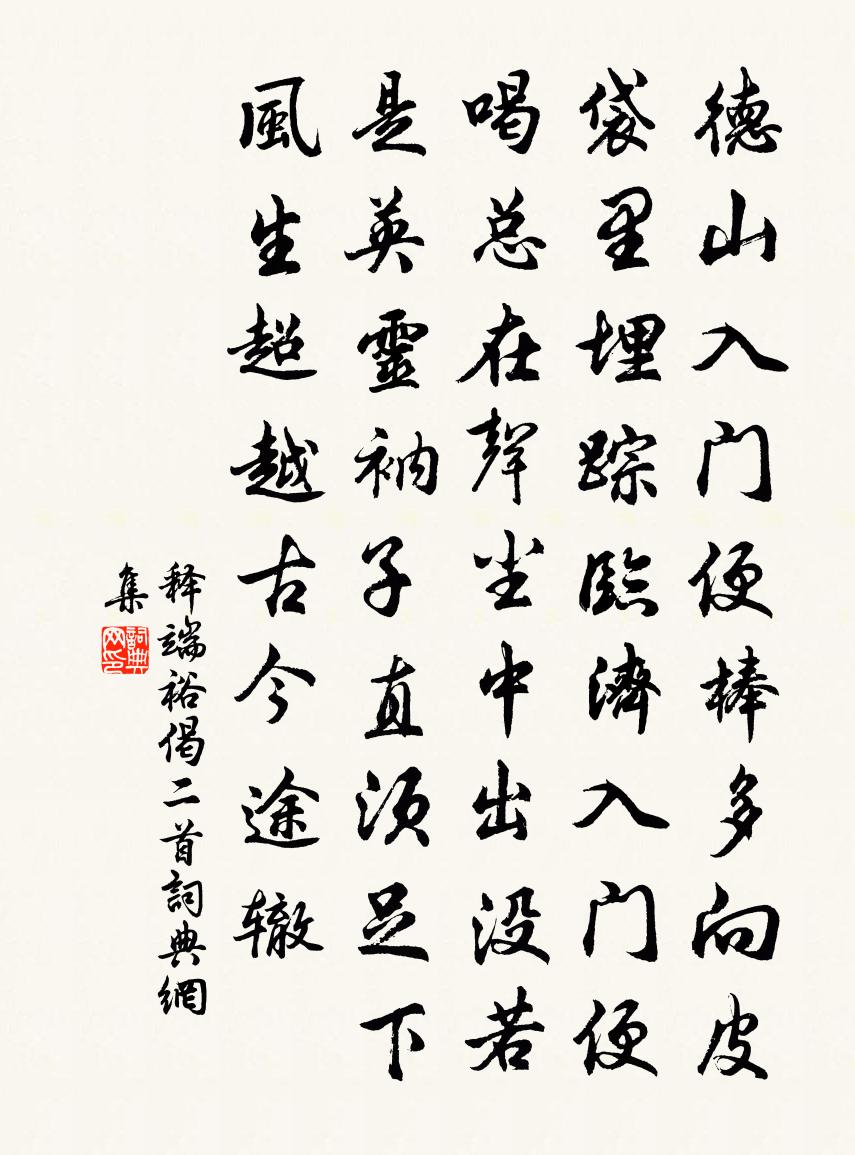 德山入门便棒多向皮
袋里埋踪臨濟入门便
喝总在聲尘中出没若
是英靈衲子直须足下
風生超越古今途辙
释端裕偈二首詞典網
集
詞典网印